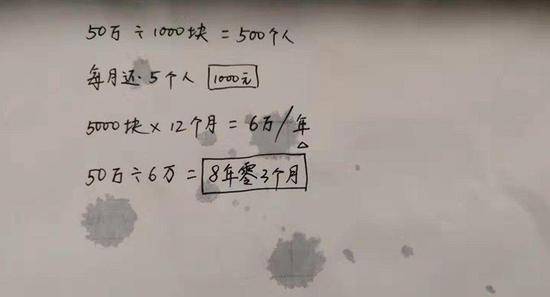 50万÷1000块=500个人
每月还.5个人 1000元
5000块×12个月=6万/年
50万÷6万=8年零3个月